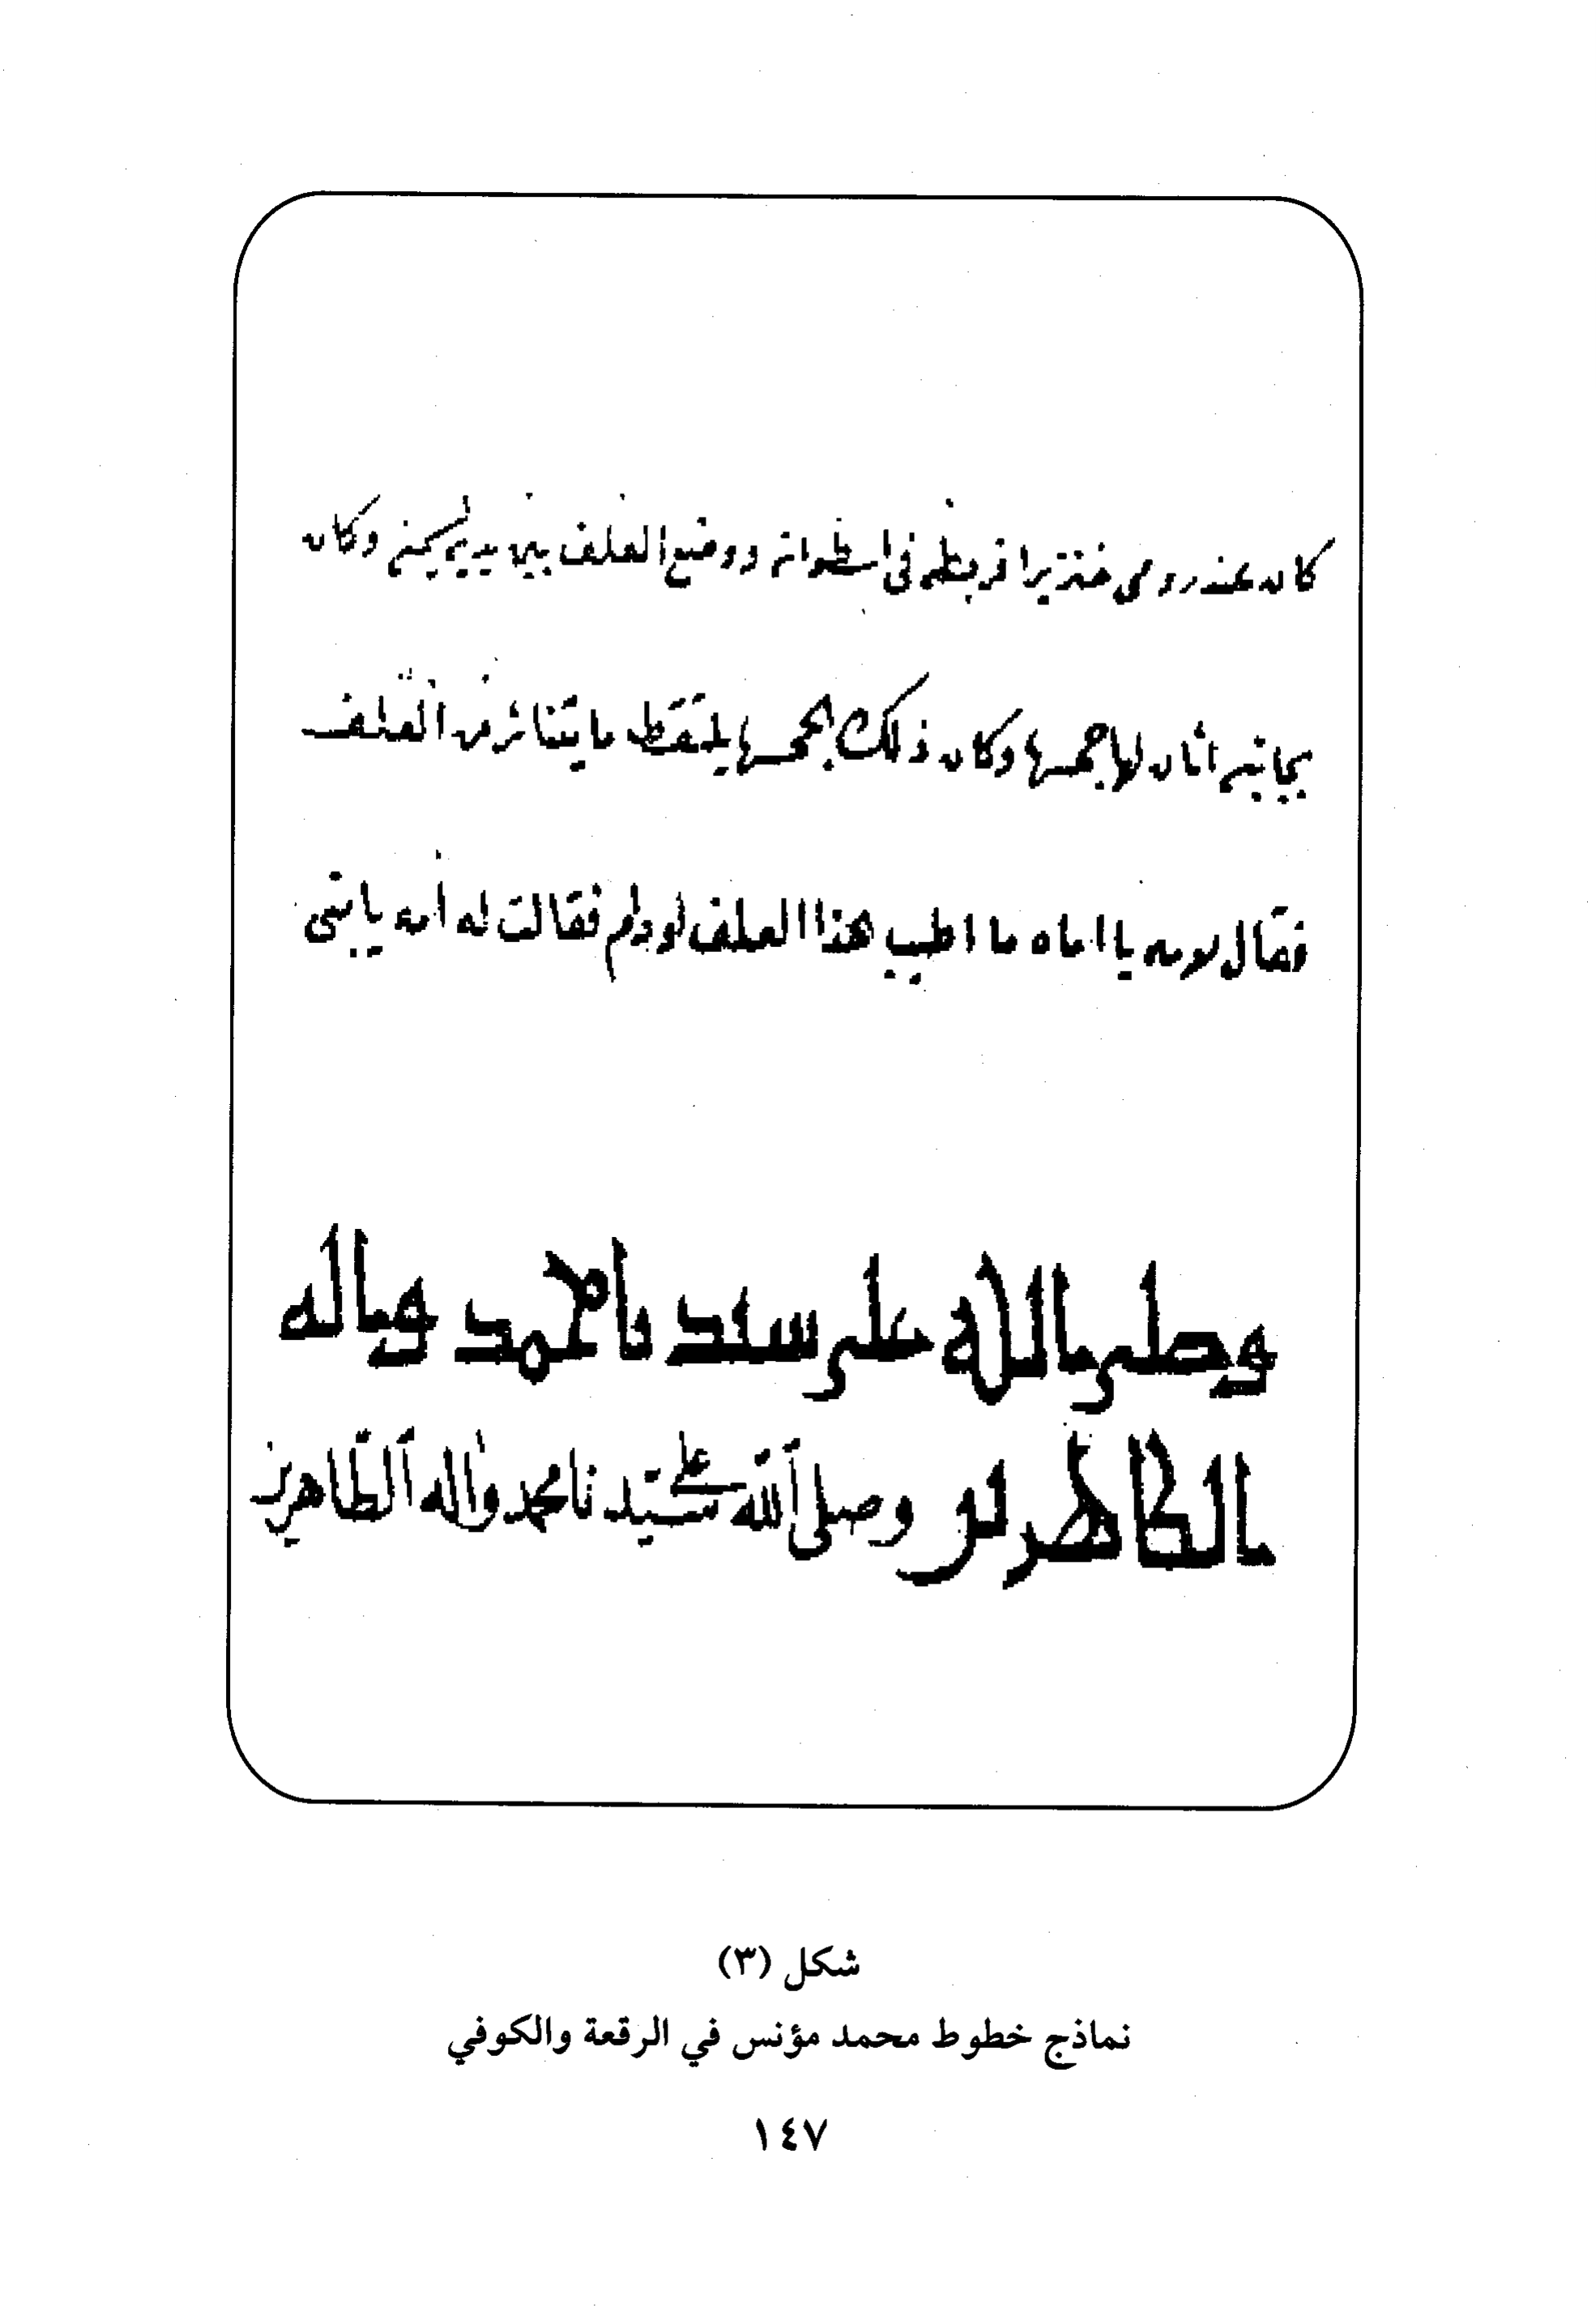 كان عند رومى خنزيرا فربطه فى اسطوانة ووضع العلف بين يديه ليسمنه وكان
بجانبه اتان لها جحش وكان ذلك الجحش يلتقط ما يتناثر من العلف
فقال لامه يا اماه ما اطيب هذا العلف لو دام فقالت له أمه يا بنى
وصلى الله على سيدنا محمد وآله
الطاهرين وصلى الله على سيدنا محمد وآله الطاهرين
شكل (٣)
نماذج خطوط محمد مؤنس في الرقعة والكوفي
١٤٧